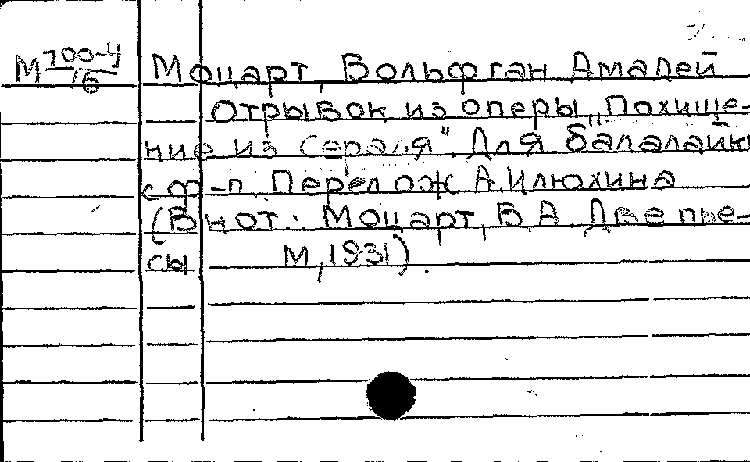 М 700-4/16 Моцарт, Вольфган Амадей
Отрывок из оперы „Похище-
ние из Сераля". Для балалайки
с ф-п. Перелож. А. Илюхина
(В нот: Моцарт, В. А. Две пье-
сы М, 1931).